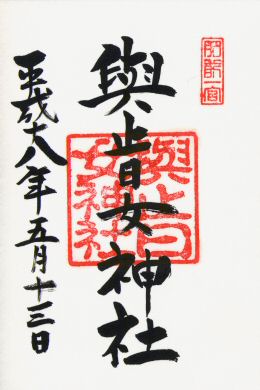 肥前一宮
與止日女神社
與止日
女神社
平成十八年五月十三日